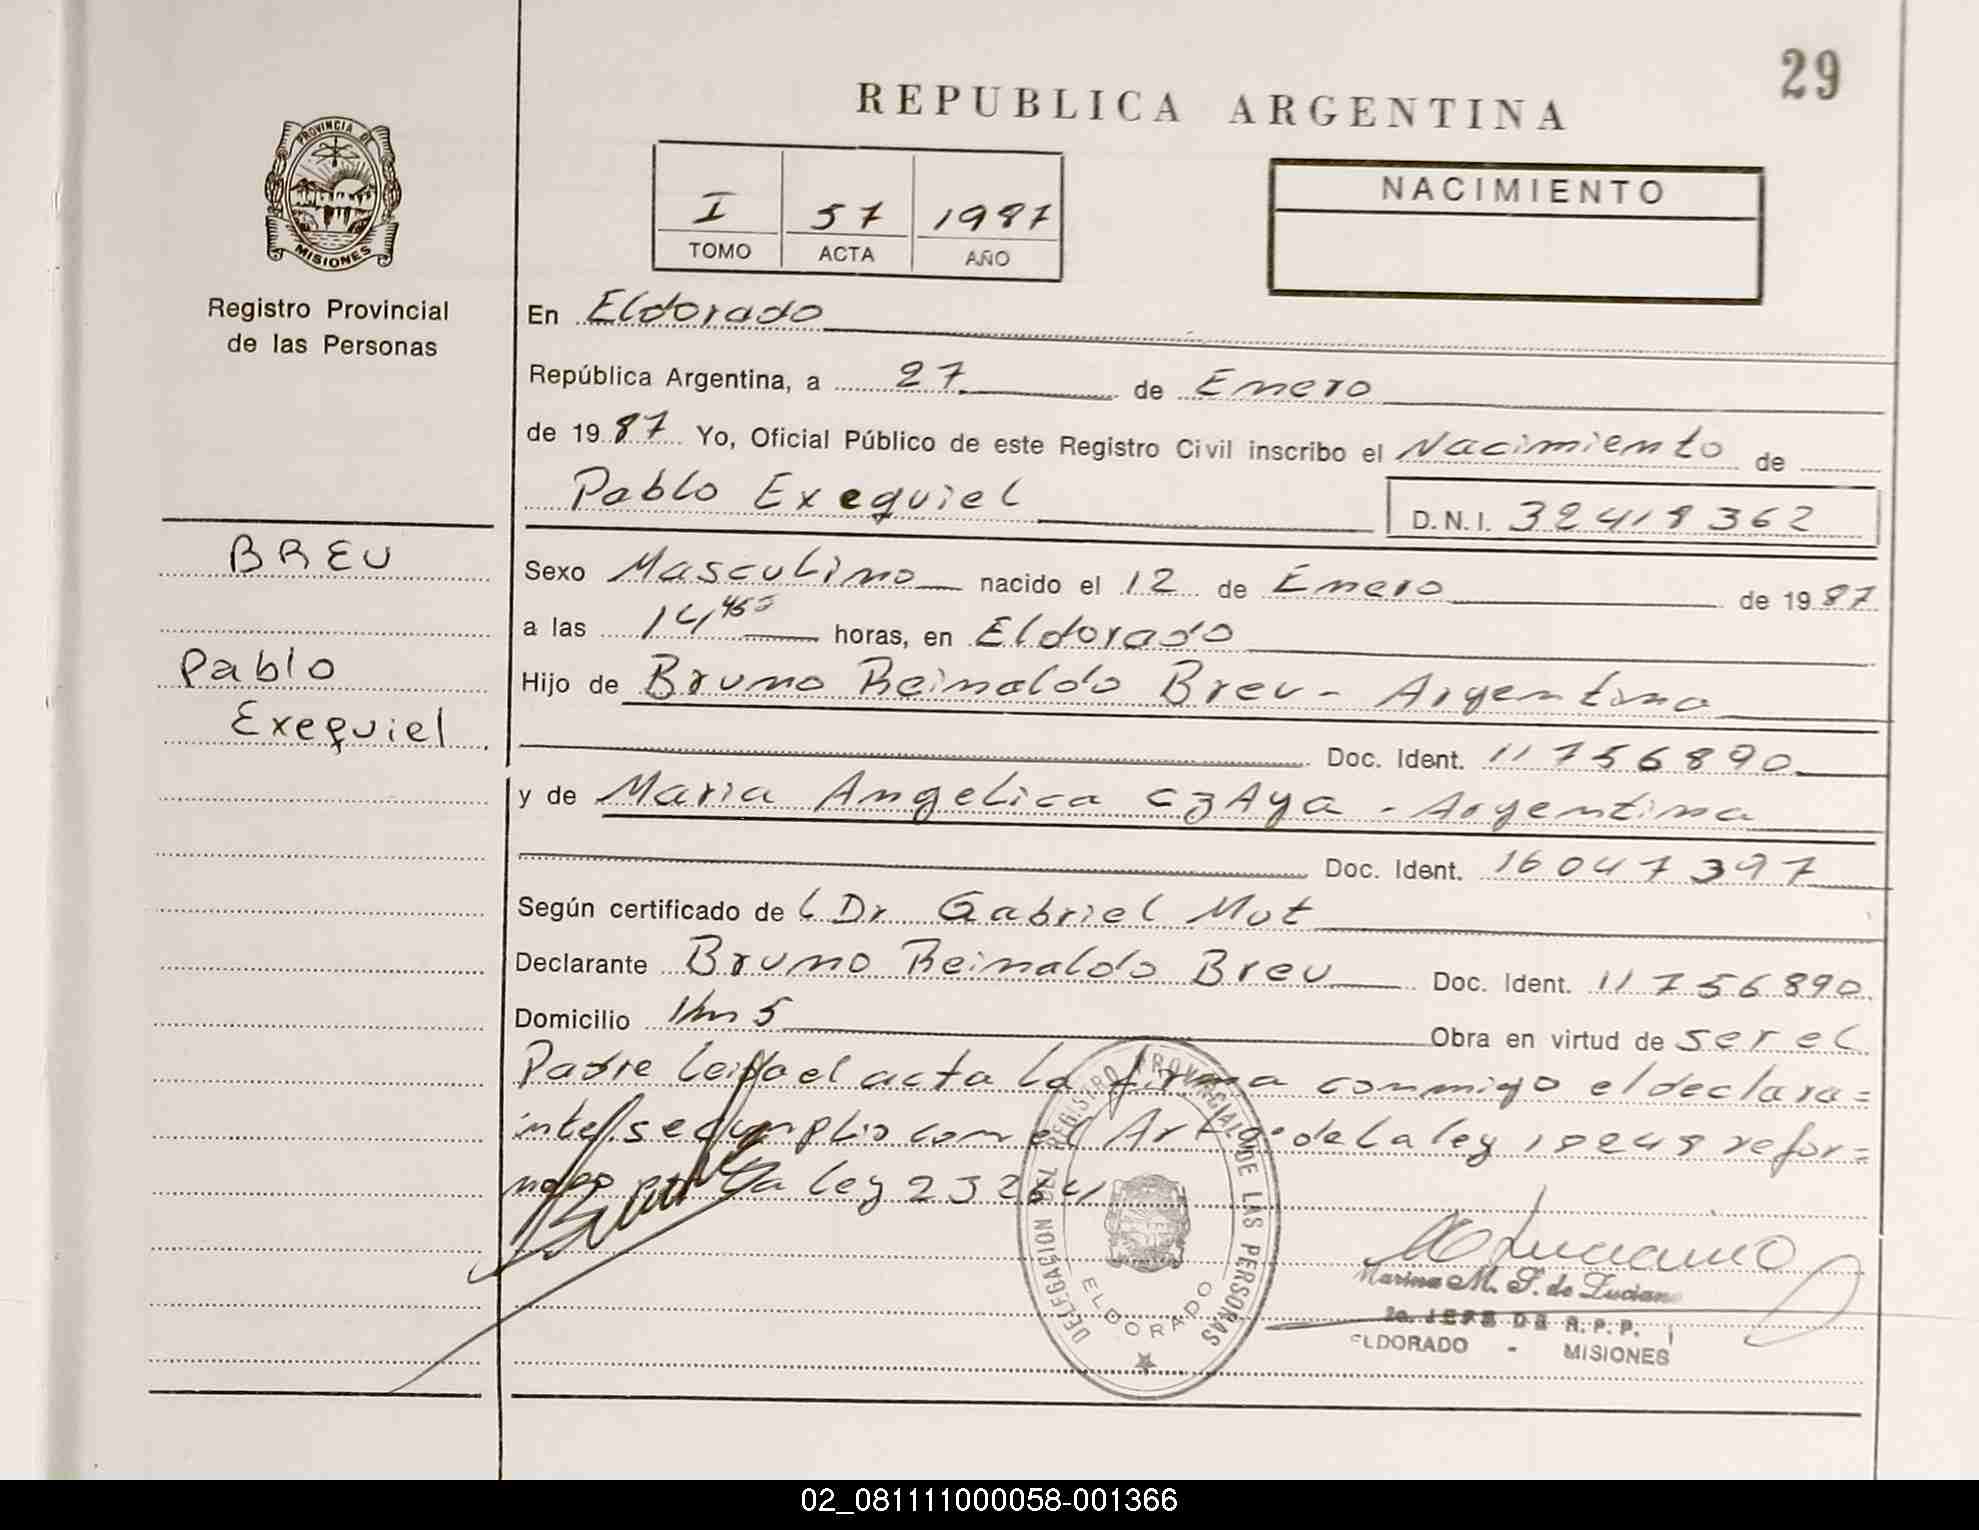 29
REPUBLICA ARGENTINA
PROVINCIA DE
MISIONES
I 57 1987
TOMO ACTA AÑO
NACIMIENTO
Registro Provincial
de las Personas
En Eldorado
República Argentina, a 27 de Enero
de 1987 Yo, Oficial Público de este Registro Civil inscribo el Nacimiento de
Pablo Exequiel D.N.I. 32418362
BREU
Pablo
Exequiel
Sexo Masculino nacido el 12 de Enero de 1987
a las 14,45 horas, en Eldorado
Hijo de Bruno Reinaldo Breu - Argentino
Doc. Ident. 11756890
y de Maria Angelica CzAya - Argentina
Doc. Ident. 16047397
Según certificado de Dr Gabriel Mut
Declarante Bruno Reinaldo Breu Doc. Ident. 11756890
Domicilio Km 5 Obra en virtud de ser el
Padre leida el acta la firma conmigo el declara=
nte se cumplio con el Art de la ley 18248 refor=
la ley 23264
DELEGACION DEL REGISTRO PROVINCIAL DE LAS PERSONAS
ELDORADO
Luciano
Marina M. S. de Luciano
JEFE DE R.P.P.
ELDORADO - MISIONES
02_081111000058-001366